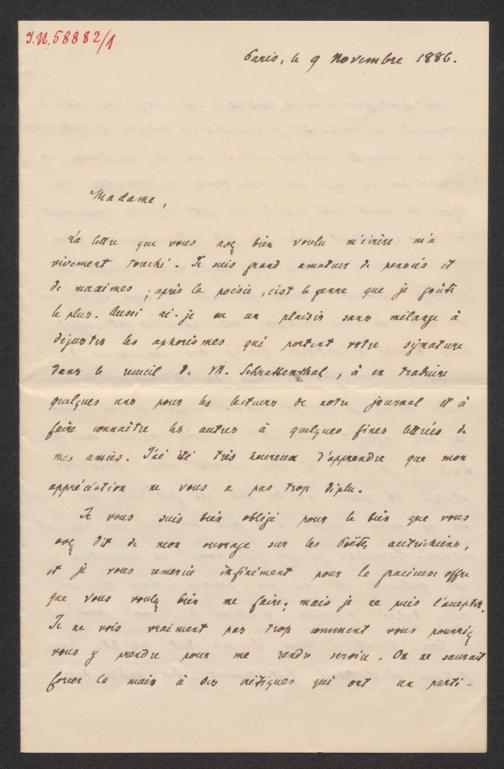 I.N. 58882/1
Paris, le 9 Novembre 1886.
Madame,
La lettre que vous avez bien voulu m'écrire m'a
vivement touché. Je suis grand amateur de pensées et
de maximes ; après la poésie, c'est le genre que je goûte
le plus. Aussi ai-je eu un plaisir sans mélange à
déguster les aphorismes qui portent votre signature
dans le recueil de M. Schrattenthal, à en traduire
quelques uns pour les lecteurs de notre journal et à
faire connaître les autres à quelques fines lettrées de
mes amies. J'ai été très heureux d'apprendre que mon
appréciation ne vous a pas trop déplu.
Je vous suis bien obligé pour le bien que vous
avez dit de mon ouvrage sur les Poëtes autrichiens,
et je vous remercie infiniment pour la gracieuse offre
que vous voulez bien me faire ; mais je ne puis l'accepter.
Je ne vois vraiment pas trop comment vous pourriez
vous y prendre pour me rendre service. On ne saurait
forcer la main à des critiques qui ont un parti-